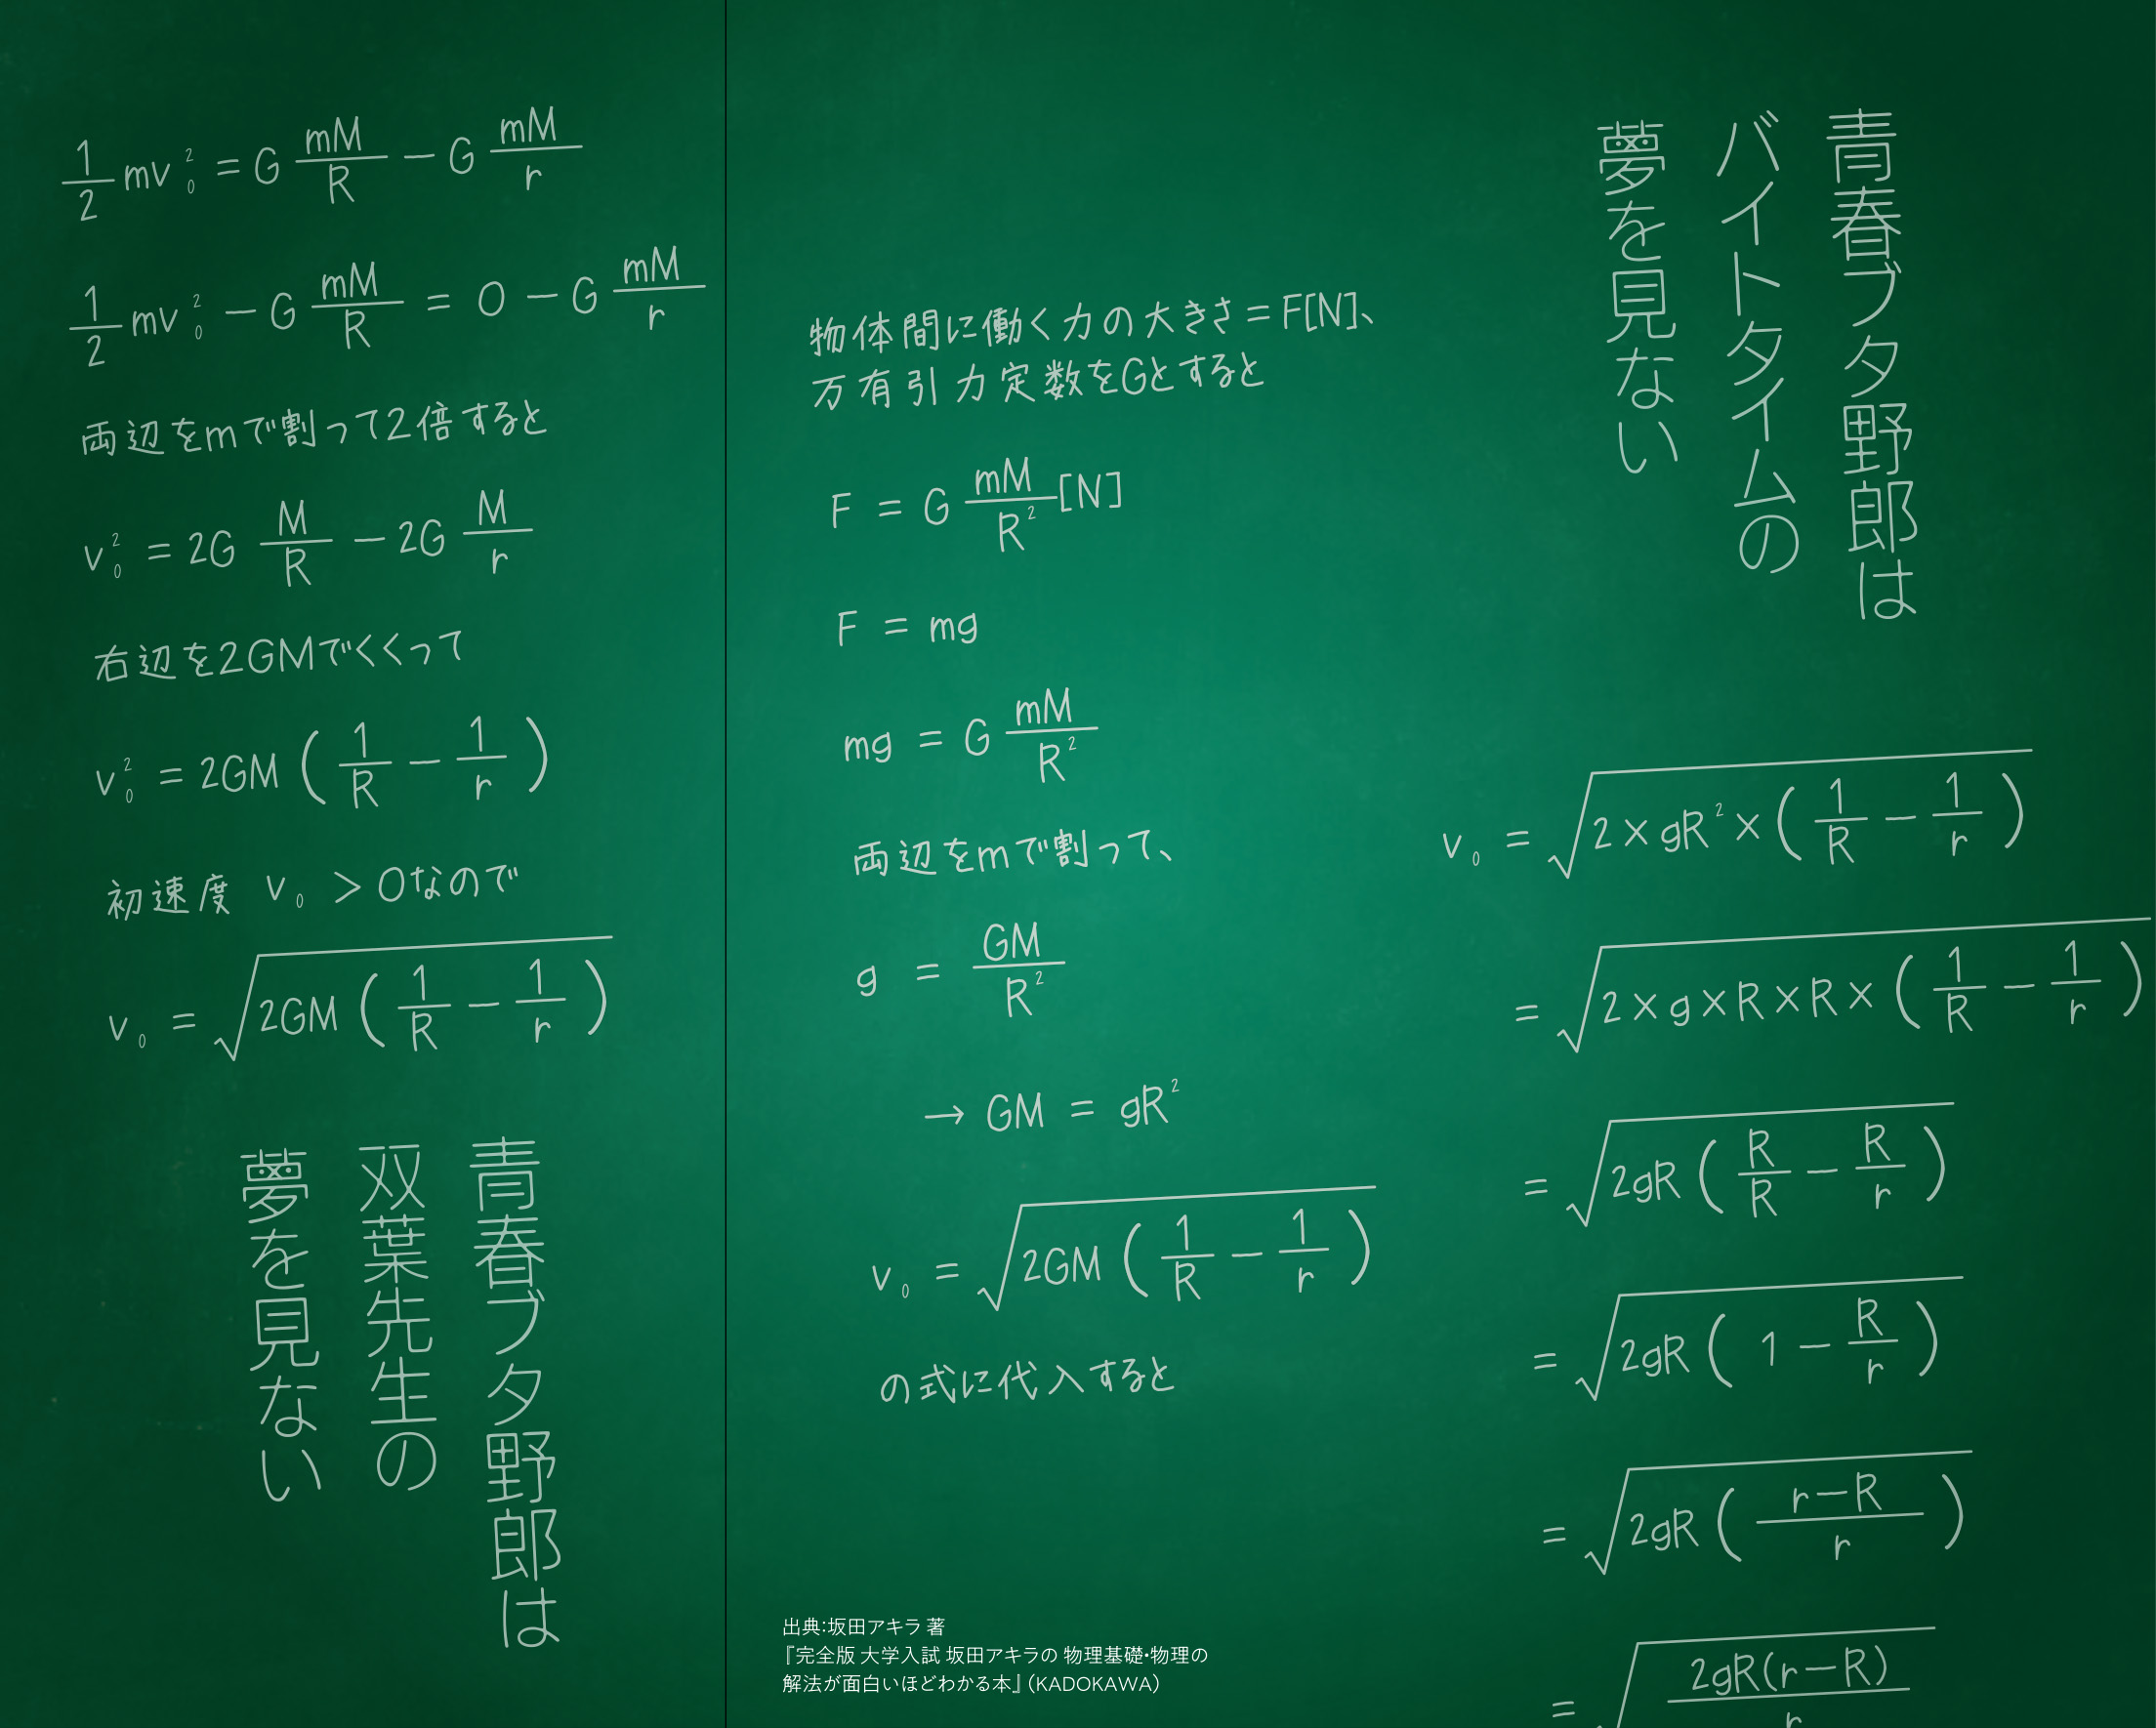 ½mv₀² = G mM/R − G mM/r
½mv₀² − G mM/R = 0 − G mM/r
両辺をmで割って2倍すると
v₀² = 2G M/R − 2G M/r
右辺を2GMでくくって
v₀² = 2GM(1/R − 1/r)
初速度 v₀ > 0なので
v₀ = √(2GM(1/R − 1/r))
青春ブタ野郎は
双葉先生の
夢を見ない
物体間に働く力の大きさ=F[N]、
万有引力定数をGとすると
F = G mM/R² [N]
F = mg
mg = G mM/R²
両辺をmで割って、
g = GM/R²
→ GM = gR²
v₀ = √(2GM(1/R − 1/r))
の式に代入すると
出典:坂田アキラ 著
『完全版 大学入試 坂田アキラの 物理基礎・物理の
解法が面白いほどわかる本』(KADOKAWA)
青春ブタ野郎は
バイトタイムの
夢を見ない
v₀ = √(2×gR²×(1/R − 1/r))
= √(2×g×R×R×(1/R − 1/r))
= √(2gR(R/R − R/r))
= √(2gR(1 − R/r))
= √(2gR((r−R)/r))
= √(2gR(r−R)/r)